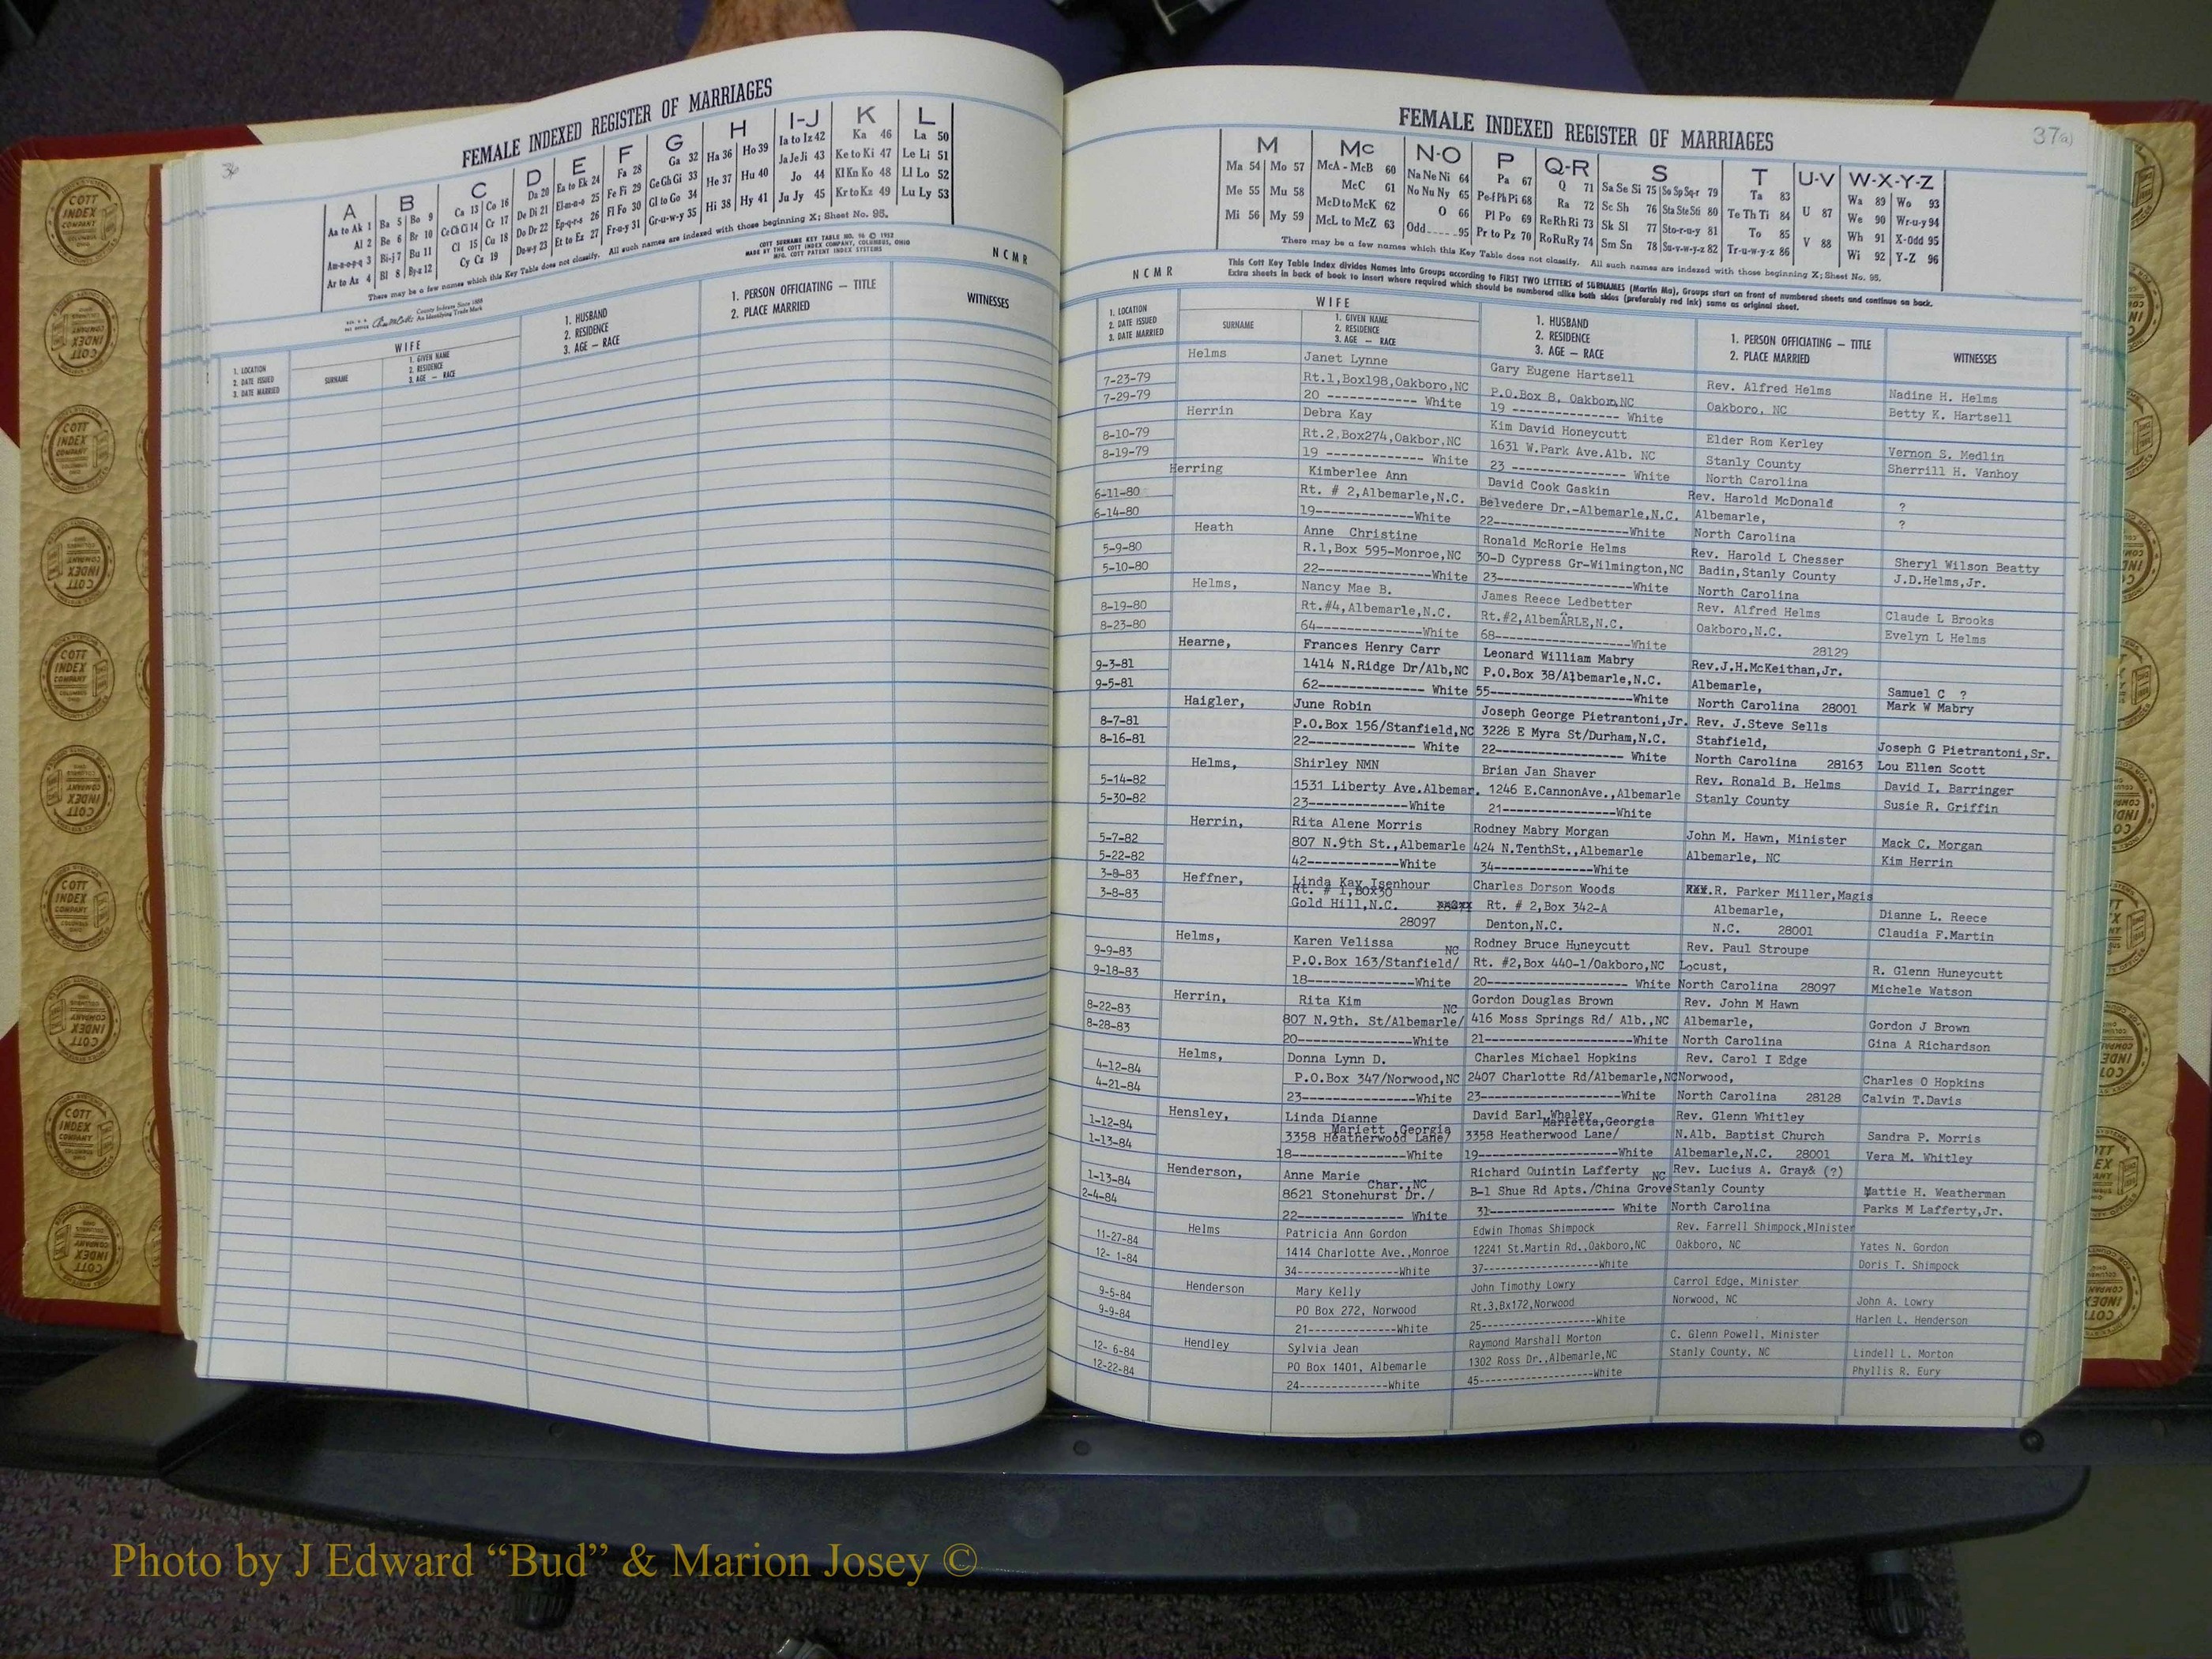 36
FEMALE INDEXED REGISTER OF MARRIAGES
A B C D E F G H I-J K L
Aa to Ak 1 Ba 5 Bo 9 Ca 13 Co 16 Da 20 Ea to Ek 24 Fa 28 Ga 32 Ha 36 Ho 39 Ia to Iz 42 Ka 46 La 50
Al 2 Be 6 Br 10 Ce Ch Ci 14 Cr 17 De Di 21 El-m-n-o 25 Fe Fi 29 Ge Gh Gi 33 He 37 Hu 40 Ja Je Ji 43 Ke to Ki 47 Le Li 51
Am-n-o-p-q 3 Bi-j 7 Bu 11 Cl 15 Cu 18 Do Dr 22 Ep-q-r-s 26 Fl Fo 30 Gl to Go 34 Hi 38 Hy 41 Jo 44 Kl Kn Ko 48 Ll Lo 52
Ar to Az 4 Bl 8 By-z 12 Cy Cz 19 Du-w-y 23 Et to Ez 27 Fr-u-y 31 Gr-u-w-y 35 Ju Jy 45 Kr to Kz 49 Lu Ly 53
There may be a few names which this Key Table does not classify. All such names are indexed with those beginning X; Sheet No. 95.
COTT SURNAME KEY TABLE NO. 96 © 1952
MADE BY THE COTT INDEX COMPANY, COLUMBUS, OHIO
MFG. COTT PATENT INDEX SYSTEMS
NCMR
County Indexes Since 1888
An Identifying Trade Mark
1. LOCATION
2. DATE ISSUED
3. DATE MARRIED
WIFE
SURNAME
1. GIVEN NAME
2. RESIDENCE
3. AGE — RACE
1. HUSBAND
2. RESIDENCE
3. AGE — RACE
1. PERSON OFFICIATING — TITLE
2. PLACE MARRIED
WITNESSES
37(a)
FEMALE INDEXED REGISTER OF MARRIAGES
M Mc N-O P Q-R S T U-V W-X-Y-Z
Ma 54 Mo 57 McA - McB 60 Na Ne Ni 64 Pa 67 Q 71 Sa Se Si 75 So Sp Sq-r 79 Ta 83 U 87 Wa 89 Wo 93
Me 55 Mu 58 McC 61 No Nu Ny 65 Pe-f Ph Pi 68 Ra 72 Sc Sh 76 Sta Ste Sti 80 Te Th Ti 84 V 88 We 90 Wr-u-y 94
Mi 56 My 59 McD to McK 62 O 66 Pl Po 69 Re Rh Ri 73 Sk Sl 77 Sto-r-u-y 81 To 85 Wh 91 X-Odd 95
McL to McZ 63 Odd 95 Pr to Pz 70 Ro Ru Ry 74 Sm Sn 78 Su-v-w-y-z 82 Tr-u-w-y-z 86 Wi 92 Y-Z 96
There may be a few names which this Key Table does not classify. All such names are indexed with those beginning X; Sheet No. 95.
NCMR
This Cott Key Table Index divides Names into Groups according to FIRST TWO LETTERS of SURNAMES (Martin Ma), Groups start on front of numbered sheets and continue on back.
Extra sheets in back of book to insert where required which should be numbered alike both sides (preferably red ink) same as original sheet.
1. LOCATION
2. DATE ISSUED
3. DATE MARRIED
WIFE
SURNAME
1. GIVEN NAME
2. RESIDENCE
3. AGE — RACE
1. HUSBAND
2. RESIDENCE
3. AGE — RACE
1. PERSON OFFICIATING — TITLE
2. PLACE MARRIED
WITNESSES
Helms Janet Lynne Gary Eugene Hartsell Rev. Alfred Helms Nadine H. Helms
7-23-79 Rt.1,Box198,Oakboro,NC P.O.Box 8, Oakboro,NC Oakboro, NC Betty K. Hartsell
7-29-79 20 ------------ White 19 -------------- White
Herrin Debra Kay Kim David Honeycutt Elder Rom Kerley Vernon S. Medlin
8-10-79 Rt.2,Box274,Oakbor,NC 1631 W.Park Ave.Alb. NC Stanly County Sherrill H. Vanhoy
8-19-79 19 ------------ White 23 -------------- White North Carolina
Herring Kimberlee Ann David Cook Gaskin Rev. Harold McDonald ?
6-11-80 Rt. # 2,Albemarle,N.C. Belvedere Dr.-Albemarle,N.C. Albemarle, ?
6-14-80 19-------------White 22------------------White North Carolina
Heath Anne Christine Ronald McRorie Helms Rev. Harold L Chesser Sheryl Wilson Beatty
5-9-80 R.1,Box 595-Monroe,NC 30-D Cypress Gr-Wilmington,NC Badin,Stanly County J.D.Helms,Jr.
5-10-80 22---------------White 23------------------White North Carolina
Helms, Nancy Mae B. James Reece Ledbetter Rev. Alfred Helms Claude L Brooks
8-19-80 Rt.#4,Albemarle,N.C. Rt.#2,AlbemARLE,N.C. Oakboro,N.C. Evelyn L Helms
8-23-80 64--------------White 68------------------White 28129
Hearne, Frances Henry Carr Leonard William Mabry Rev.J.H.McKeithan,Jr.
9-3-81 1414 N.Ridge Dr/Alb,NC P.O.Box 38/Albemarle,N.C. Albemarle, Samuel C ?
9-5-81 62-------------- White 55-------------------White North Carolina 28001 Mark W Mabry
Haigler, June Robin Joseph George Pietrantoni,Jr. Rev. J.Steve Sells
8-7-81 P.O.Box 156/Stanfield,NC 3228 E Myra St/Durham,N.C. Stabfield, Joseph G Pietrantoni,Sr.
8-16-81 22-------------- White 22------------------ White North Carolina 28163 Lou Ellen Scott
Helms, Shirley NMN Brian Jan Shaver Rev. Ronald B. Helms David I. Barringer
5-14-82 1531 Liberty Ave.Albemar. 1246 E.CannonAve.,Albemarle Stanly County Susie R. Griffin
5-30-82 23-------------White 21---------------White
Herrin, Rita Alene Morris Rodney Mabry Morgan John M. Hawn, Minister Mack C. Morgan
5-7-82 807 N.9th St.,Albemarle 424 N.TenthSt.,Albemarle Albemarle, NC Kim Herrin
5-22-82 42------------White 34-------------White
3-8-83 Heffner, Linda Kay Isenhour Charles Dorson Woods R. Parker Miller,Magis
3-8-83 Rt. # 1,Box30
Gold Hill,N.C. Rt. # 2,Box 342-A Albemarle, Dianne L. Reece
28097 Denton,N.C. N.C. 28001 Claudia F.Martin
Helms, Karen Velissa Rodney Bruce Huneycutt Rev. Paul Stroupe
9-9-83 P.O.Box 163/Stanfield/ NC Rt. #2,Box 440-1/Oakboro,NC Locust, R. Glenn Huneycutt
9-18-83 18---------------White 20------------------ White North Carolina 28097 Michele Watson
Herrin, Rita Kim Gordon Douglas Brown Rev. John M Hawn
8-22-83 807 N.9th. St/Albemarle/ NC 416 Moss Springs Rd/ Alb.,NC Albemarle, Gordon J Brown
8-28-83 20---------------White 21------------------White North Carolina Gina A Richardson
Helms, Donna Lynn D. Charles Michael Hopkins Rev. Carol I Edge
4-12-84 P.O.Box 347/Norwood,NC 2407 Charlotte Rd/Albemarle,NC Norwood, Charles O Hopkins
4-21-84 23---------------White 23------------------White North Carolina 28128 Calvin T.Davis
Hensley, Linda Dianne David Earl Whaley Rev. Glenn Whitley
1-12-84 Mariett ,Georgia Marietta,Georgia
1-13-84 3358 Heatherwood Lane/ 3358 Heatherwood Lane/ N.Alb. Baptist Church Sandra P. Morris
18---------------White 19------------------White Albemarle,N.C. 28001 Vera M. Whitley
Henderson, Anne Marie Richard Quintin Lafferty Rev. Lucius A. Gray& (?)
1-13-84 Char.,NC NC
2-4-84 8621 Stonehurst Dr./ B-1 Shue Rd Apts./China Grove Stanly County Mattie H. Weatherman
22-------------- White 31---------------- White North Carolina Parks M Lafferty,Jr.
Helms Patricia Ann Gordon Edwin Thomas Shimpock Rev. Farrell Shimpock,MInister
11-27-84 1414 Charlotte Ave.,Monroe 12241 St.Martin Rd.,Oakboro,NC Oakboro, NC Yates N. Gordon
12- 1-84 34---------------White 37------------------White Doris T. Shimpock
Henderson Mary Kelly John Timothy Lowry Carrol Edge, Minister
9-5-84 PO Box 272, Norwood Rt.3,Bx172,Norwood Norwood, NC John A. Lowry
9-9-84 21-------------White 25------------------White Harlen L. Henderson
Hendley Sylvia Jean Raymond Marshall Morton C. Glenn Powell, Minister
12- 6-84 PO Box 1401, Albemarle 1302 Ross Dr.,Albemarle,NC Stanly County, NC Lindell L. Morton
12-22-84 24-------------White 45------------------White Phyllis R. Eury
Photo by J Edward “Bud” & Marion Josey ©